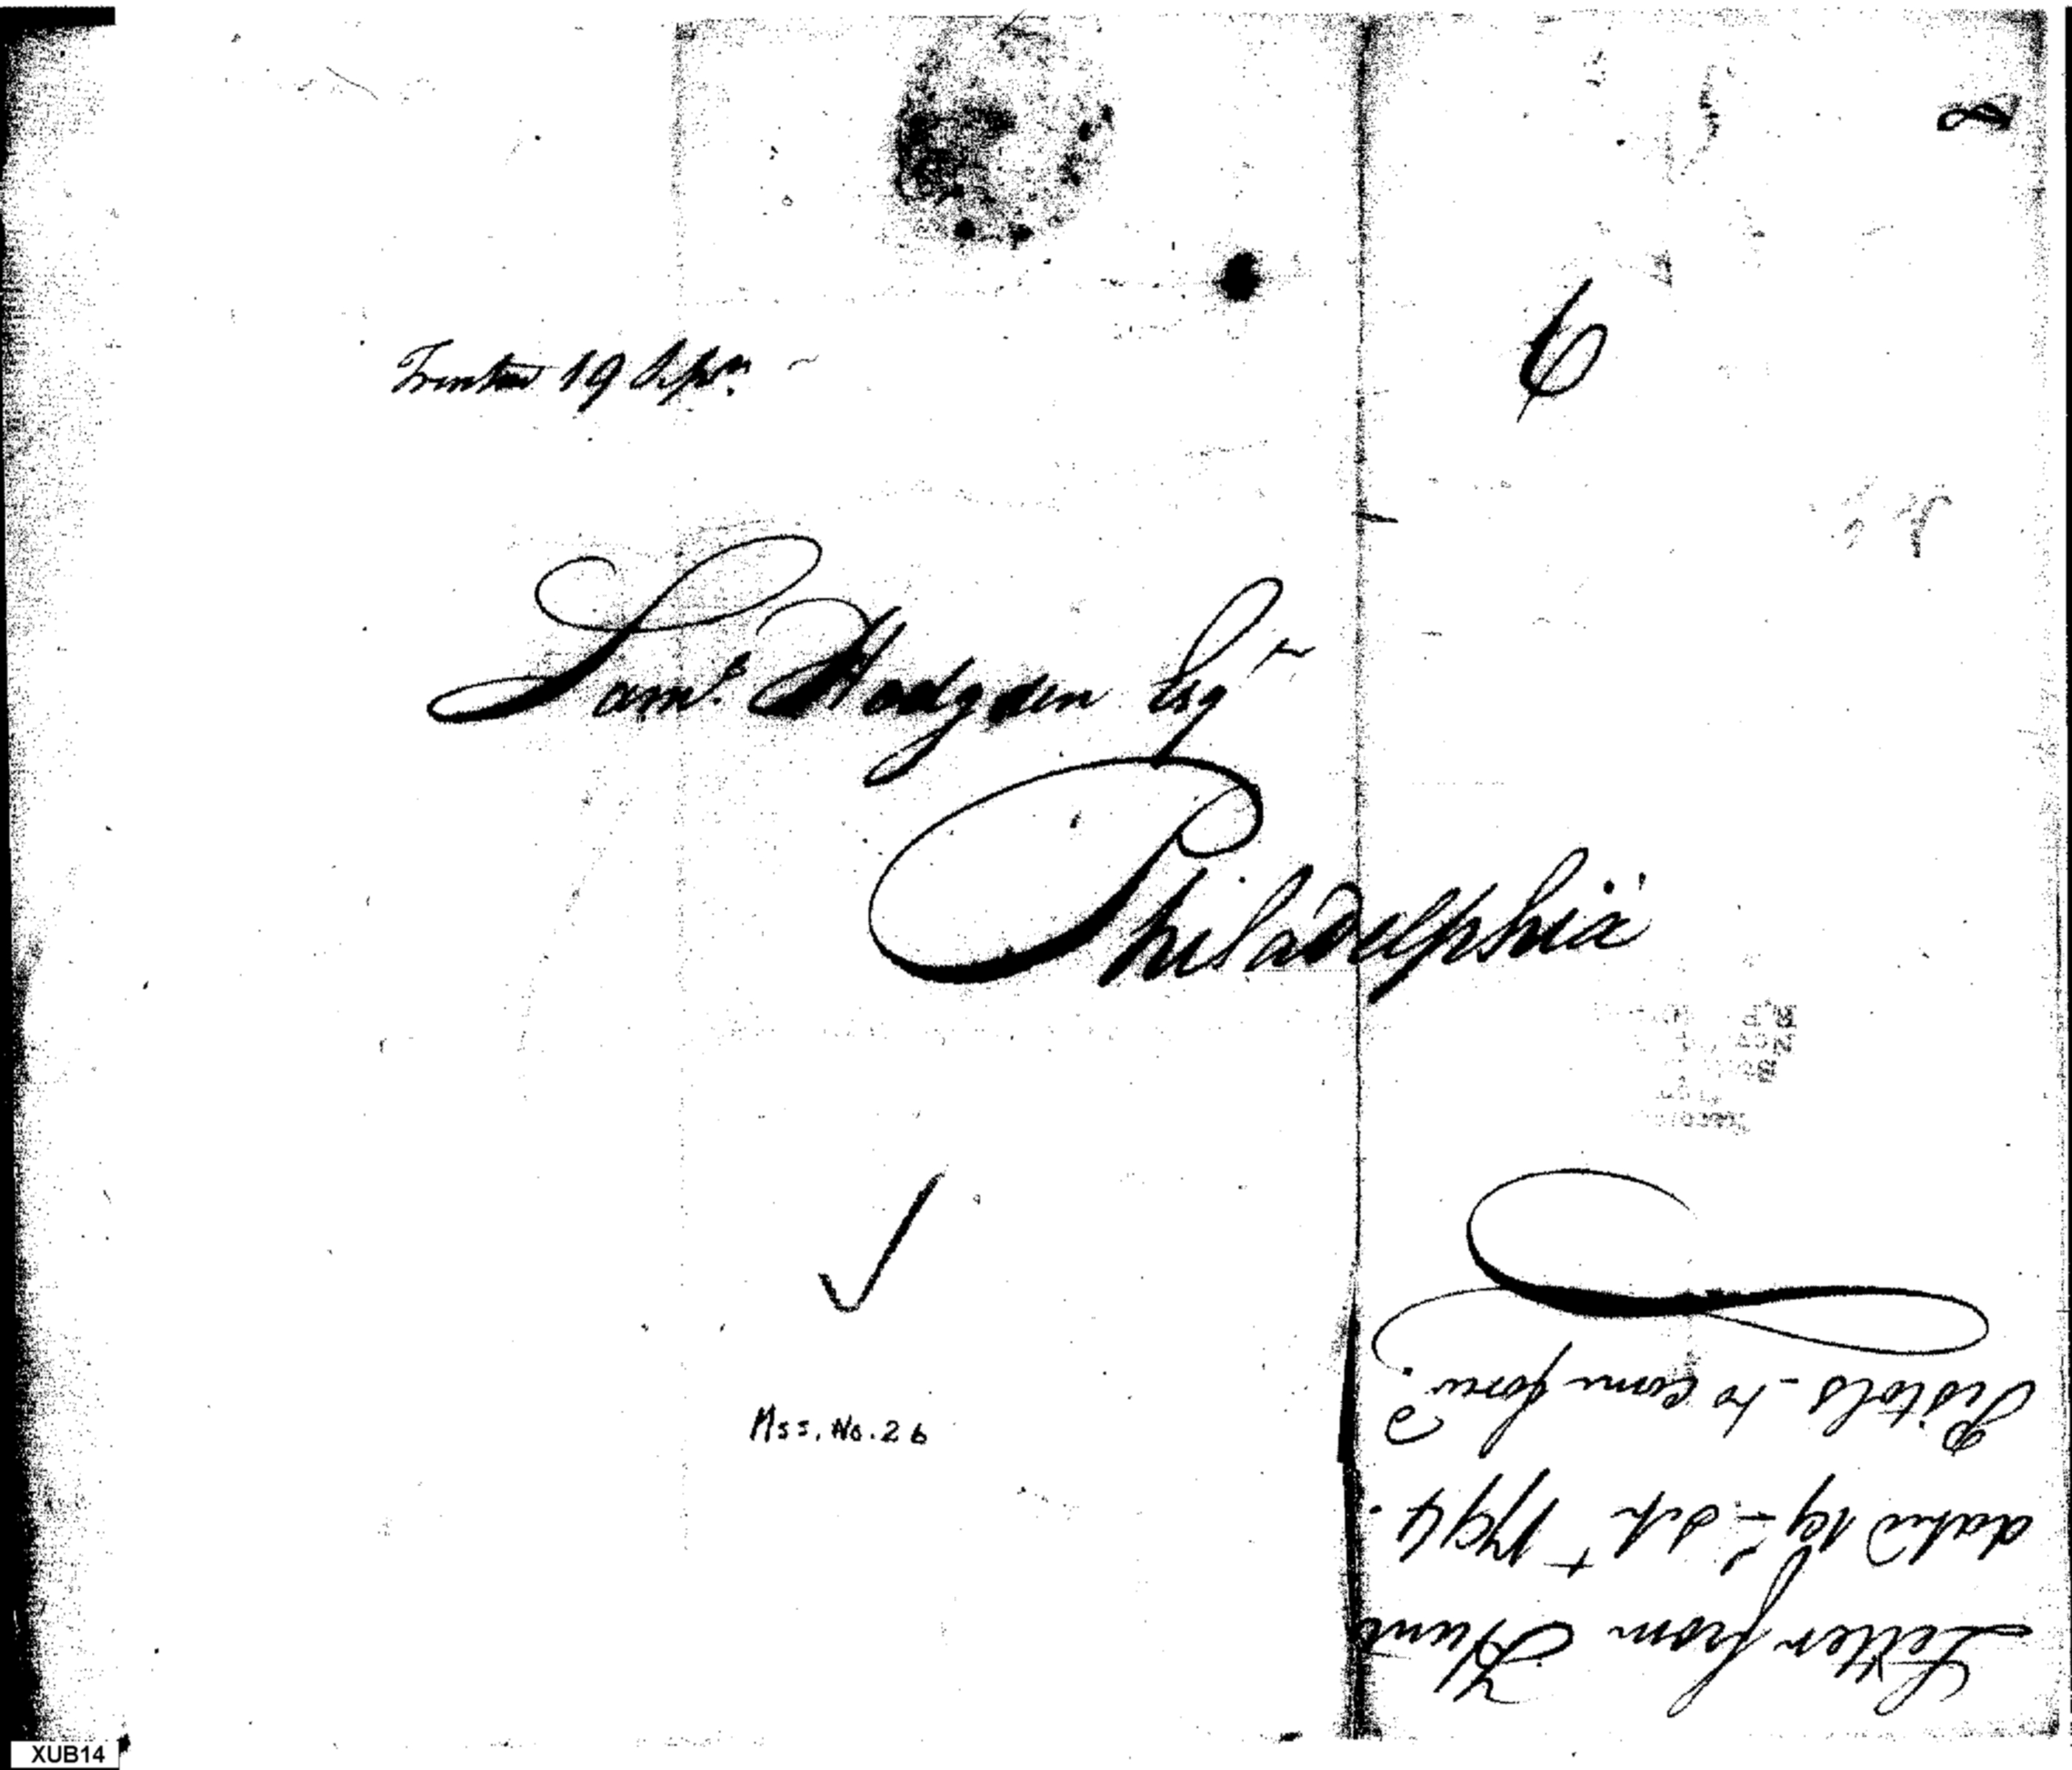 8
6
Trenton 19 Sepr.
Saml. Hodgden Esqr
Philadelphia
Mss. No. 26
Letter from Hunt
dated 19th Sept 1794.
Pistols - to come forwd.
XUB14